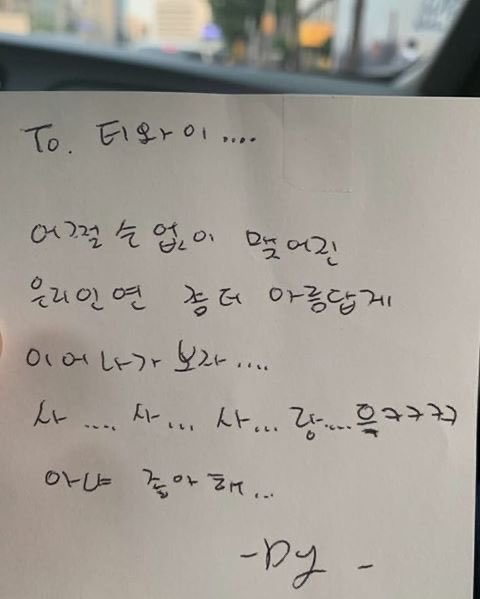 To. 티와이....
어쩔 수 없이 맺어진
우리인연 좀 더 아름답게
이어나가 보자....
사 .... 사... 사... 랑....읔ㅋㅋㅋㅋ
아냐 좋아해...
-Dy -